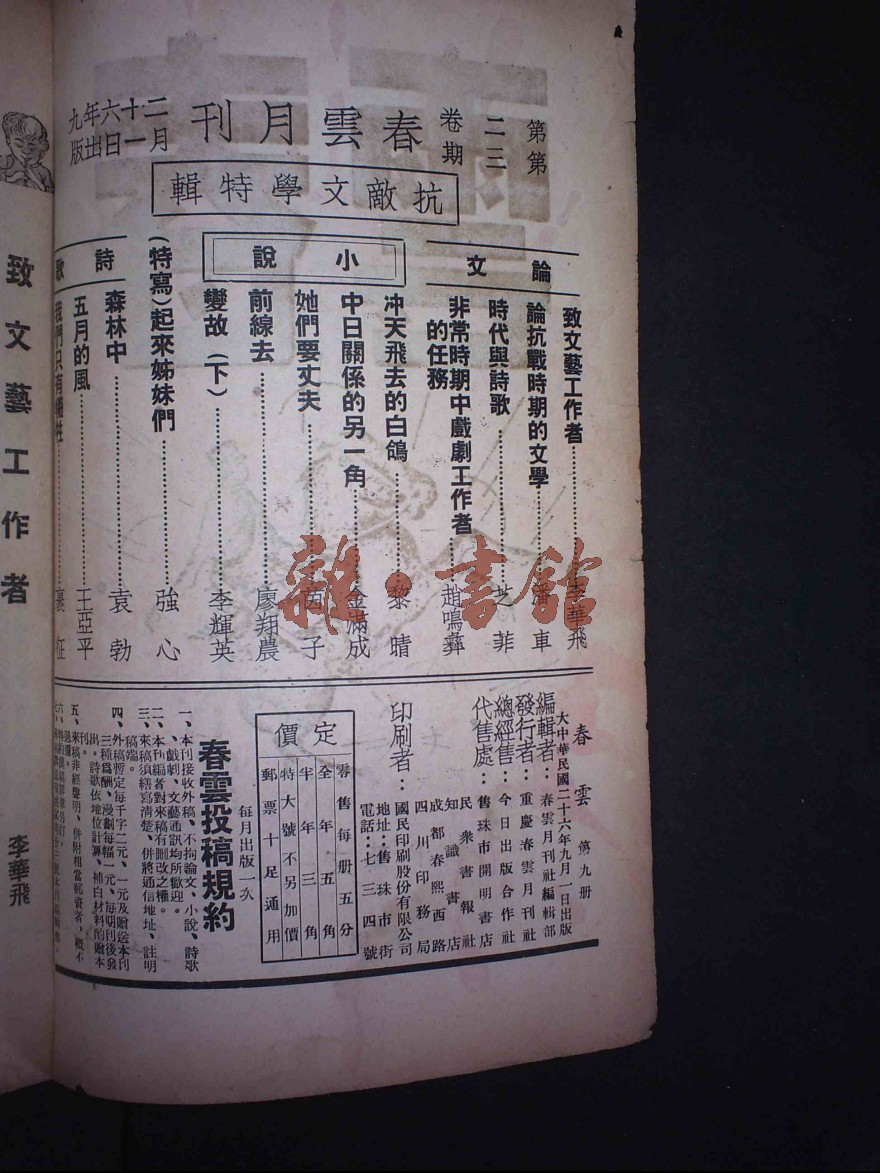 第二卷
第三期
春雲月刊
二十六年九
月一日出版
抗敵文學特輯
論文
致文藝工作者 李華飛
論抗戰時期的文學 潘車
時代與詩歌 芝菲
非常時期中戲劇工作者
的任務 趙鳴彝
小說
冲天飛去的白鴿 黎晴
中日關係的另一角 金滿成
她們要丈夫 茵子
前線去 廖翔農
變故(下) 李輝英
(特寫)起來姊妹們 強心
詩歌
森林中 袁勃
五月的風 王亞平
我們只有犧牲
春雲 第九册
大中華民國二十六年九月一日出版
編輯者:春雲月刊社編輯部
發行者:重慶春雲月刊社
總經售:今日出版合作社
代售處:售珠市開明書店
民衆書報社
知識書店
成都春熙西路
四川印務局
印刷者:國民印刷股份有限公司
地址:售珠市街
電話:七三四號
定價
零售每册五分
全年五角
半年三角
特大號不另加價
郵票十足通用
每月出版一次
春雲投稿規約
一、本刊接收外稿、不拘論文、小說、詩歌
、戲劇、文藝通訊均所歡迎。
二、本刊編者對來稿有删改之權。
三、來稿須繕寫清楚、併將通信地址、註明
稿端。
四、外稿暫定每千字二元、一元及贈送本刊
三種爲酬、漫劃每幅一元、每期刊後發
出。詩歌依地位計算、補白材料酌贈本
刊。
五、來稿非經聲明、併附相當郵資者、概不
退還。
致文藝工作者
李華飛
雜·書館